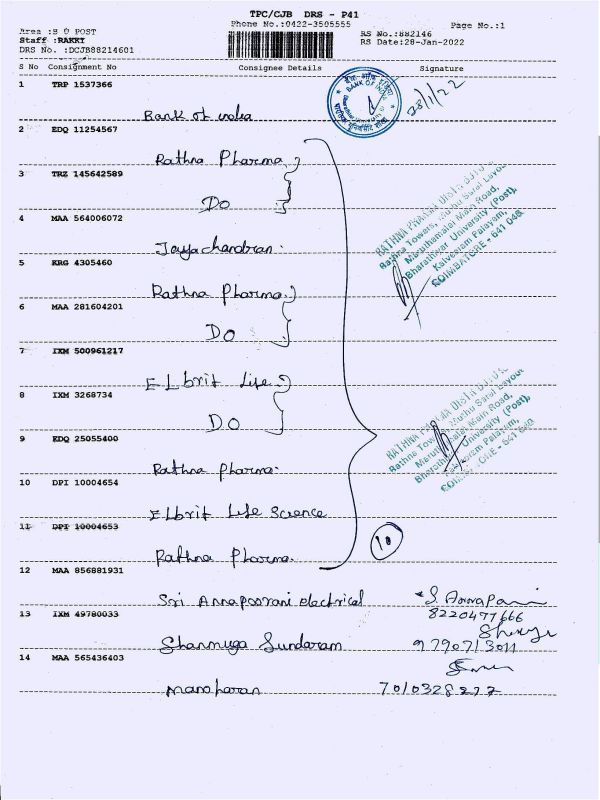 TPC/CJB DRS - P41
Phone No.:0422-3505555
Page No.:1
Area :S O POST
Staff :RAKKI
DRS No. :DCJB88214601
RS No.:882146
RS Date:28-Jan-2022
S No Consignment No Consignee Details Signature
1 TRP 1537366
Bank of india
BANK OF INDIA
28/1/22
2 EDQ 11254567
Rathna Pharma
3 TRZ 145642589
Do
4 MAA 564006072
Jayachandran.
5 KRG 4305460
Rathna Pharma
6 MAA 281604201
Do
RATHNA PHARMA DISTR
Rathna Towers, Muthu Saral Layout
Maruthamalai Main Road,
Bharathiar University (Post),
Kalveeram Palayam,
COIMBATORE - 641 046
7 IXM 500961217
Elbrit Life
8 IXM 3268734
Do
9 EDQ 25055400
Rathna Pharma.
RATHNA PHARMA DISTR
Rathna Towers, Muthu Saral Layout
Maruthamalai Main Road,
University (Post),
Palayam,
10 DPI 10004654
Elbrit Life Science
11 DPI 10004653
Rathna Pharma.
10
12 MAA 856881931
Sri Annapoorani electrical
8220477666
13 IXM 49780033
Shanmuga Sundaram
9790713011
14 MAA 565436403
manoharan
7010328277